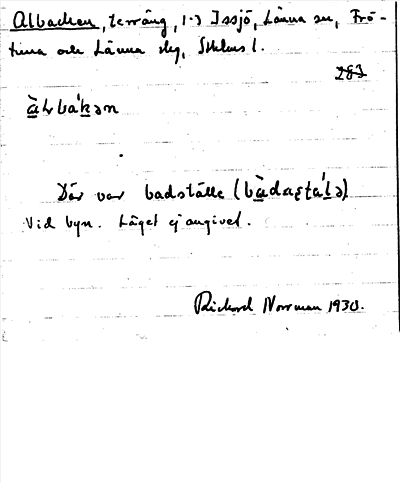 Albacken, terräng, i Issjö, Länna sn, Frö-
tuna och Länna slg, Sthlms l.
283
Där var badställe
Vid byn. Läget ej angivet.
Richard Norrman 1930.